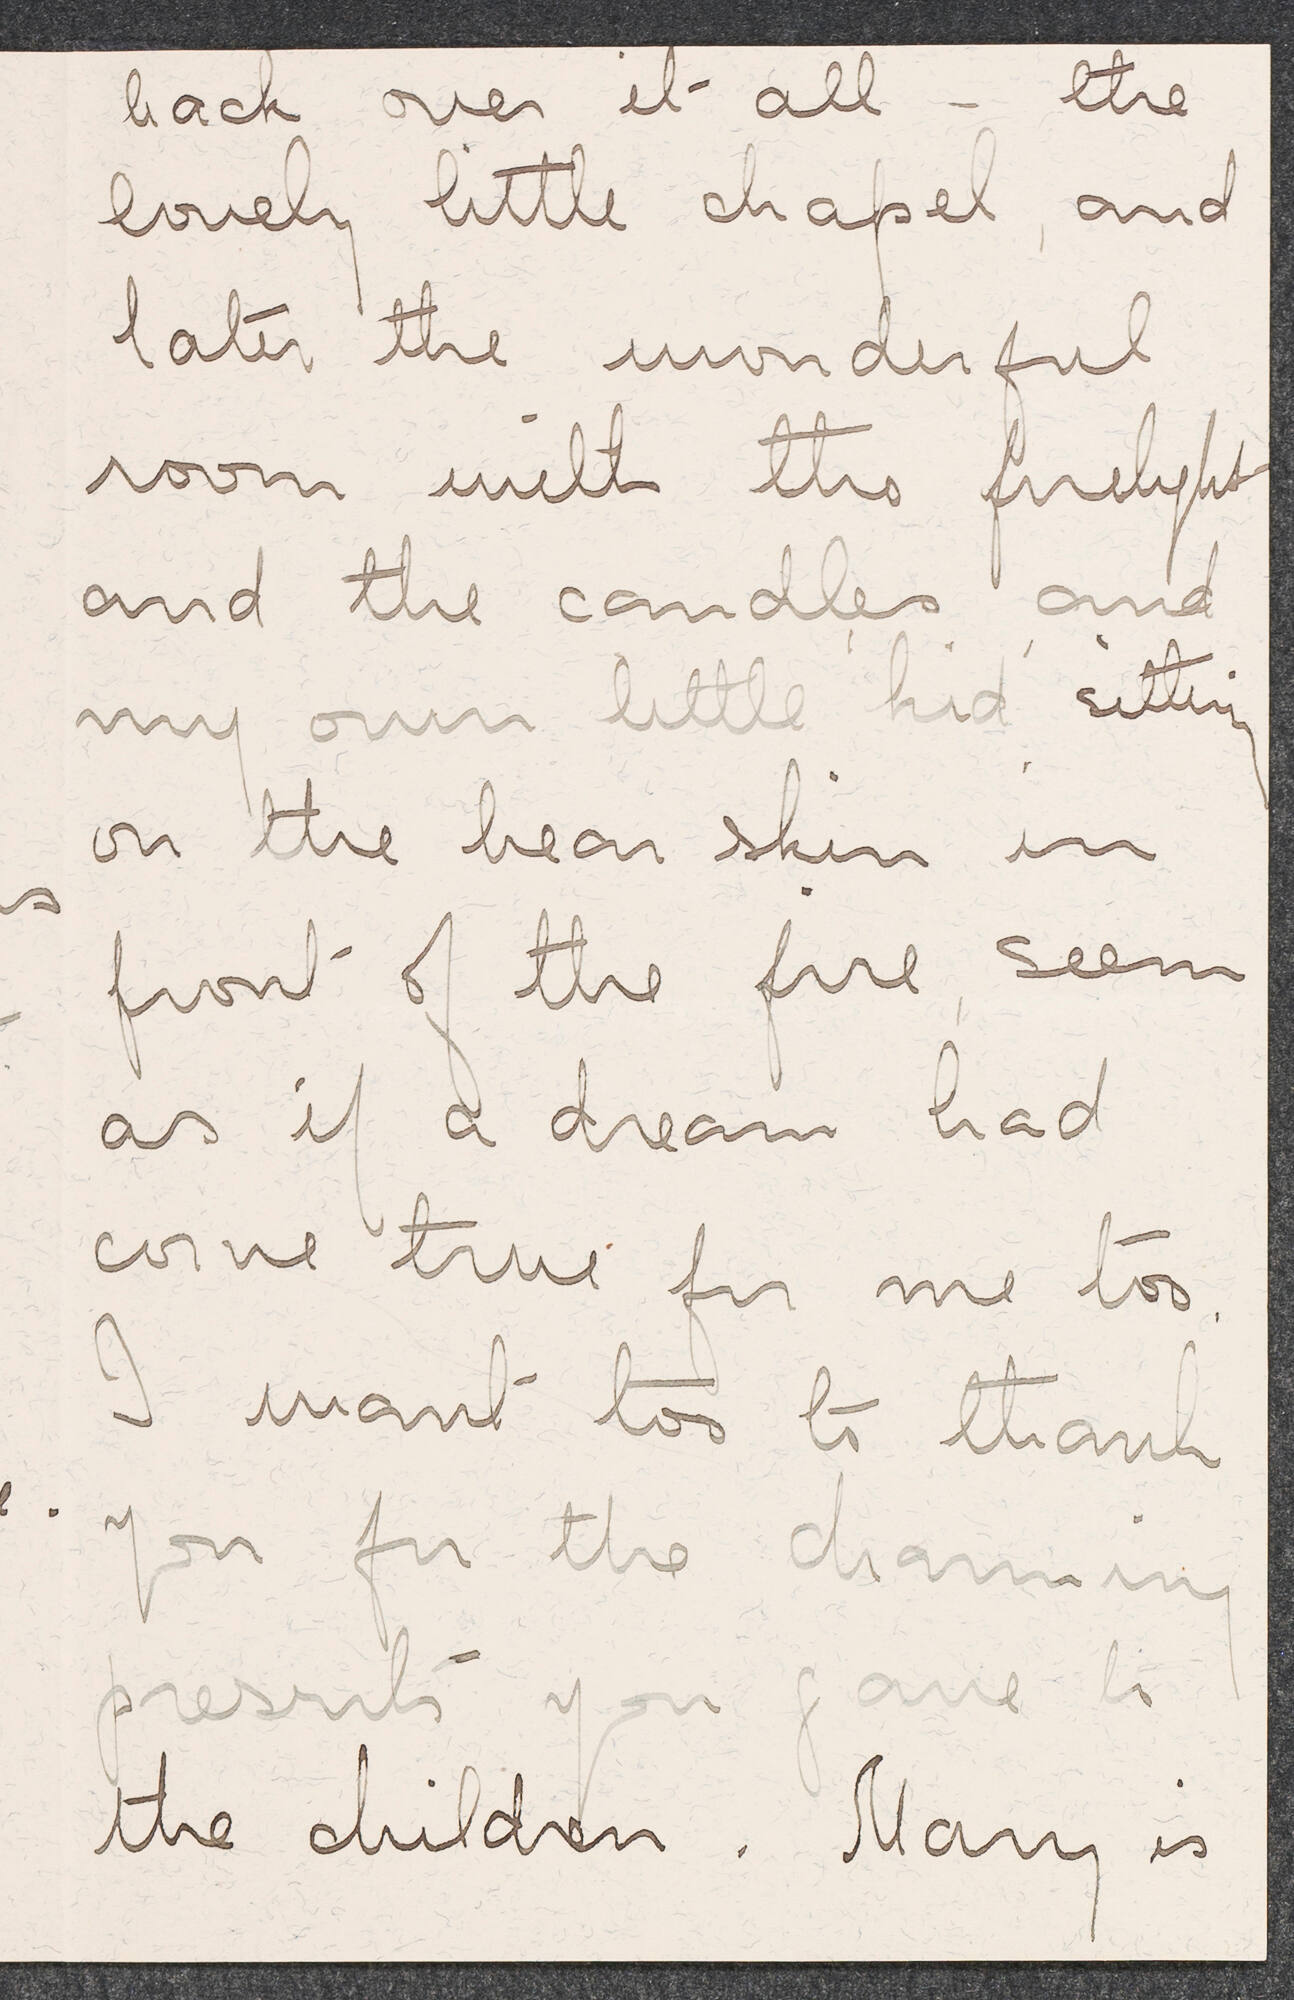 back over it all – the
lovely little chapel, and
later the wonderful
room with the firelight
and the candles, and
my own little 'kid' sitting
on the bear skin in
front of the fire, seem
as if a dream had
come true for me too.
I want too to thank
you for the charming
presents you gave to
the children. Mary is